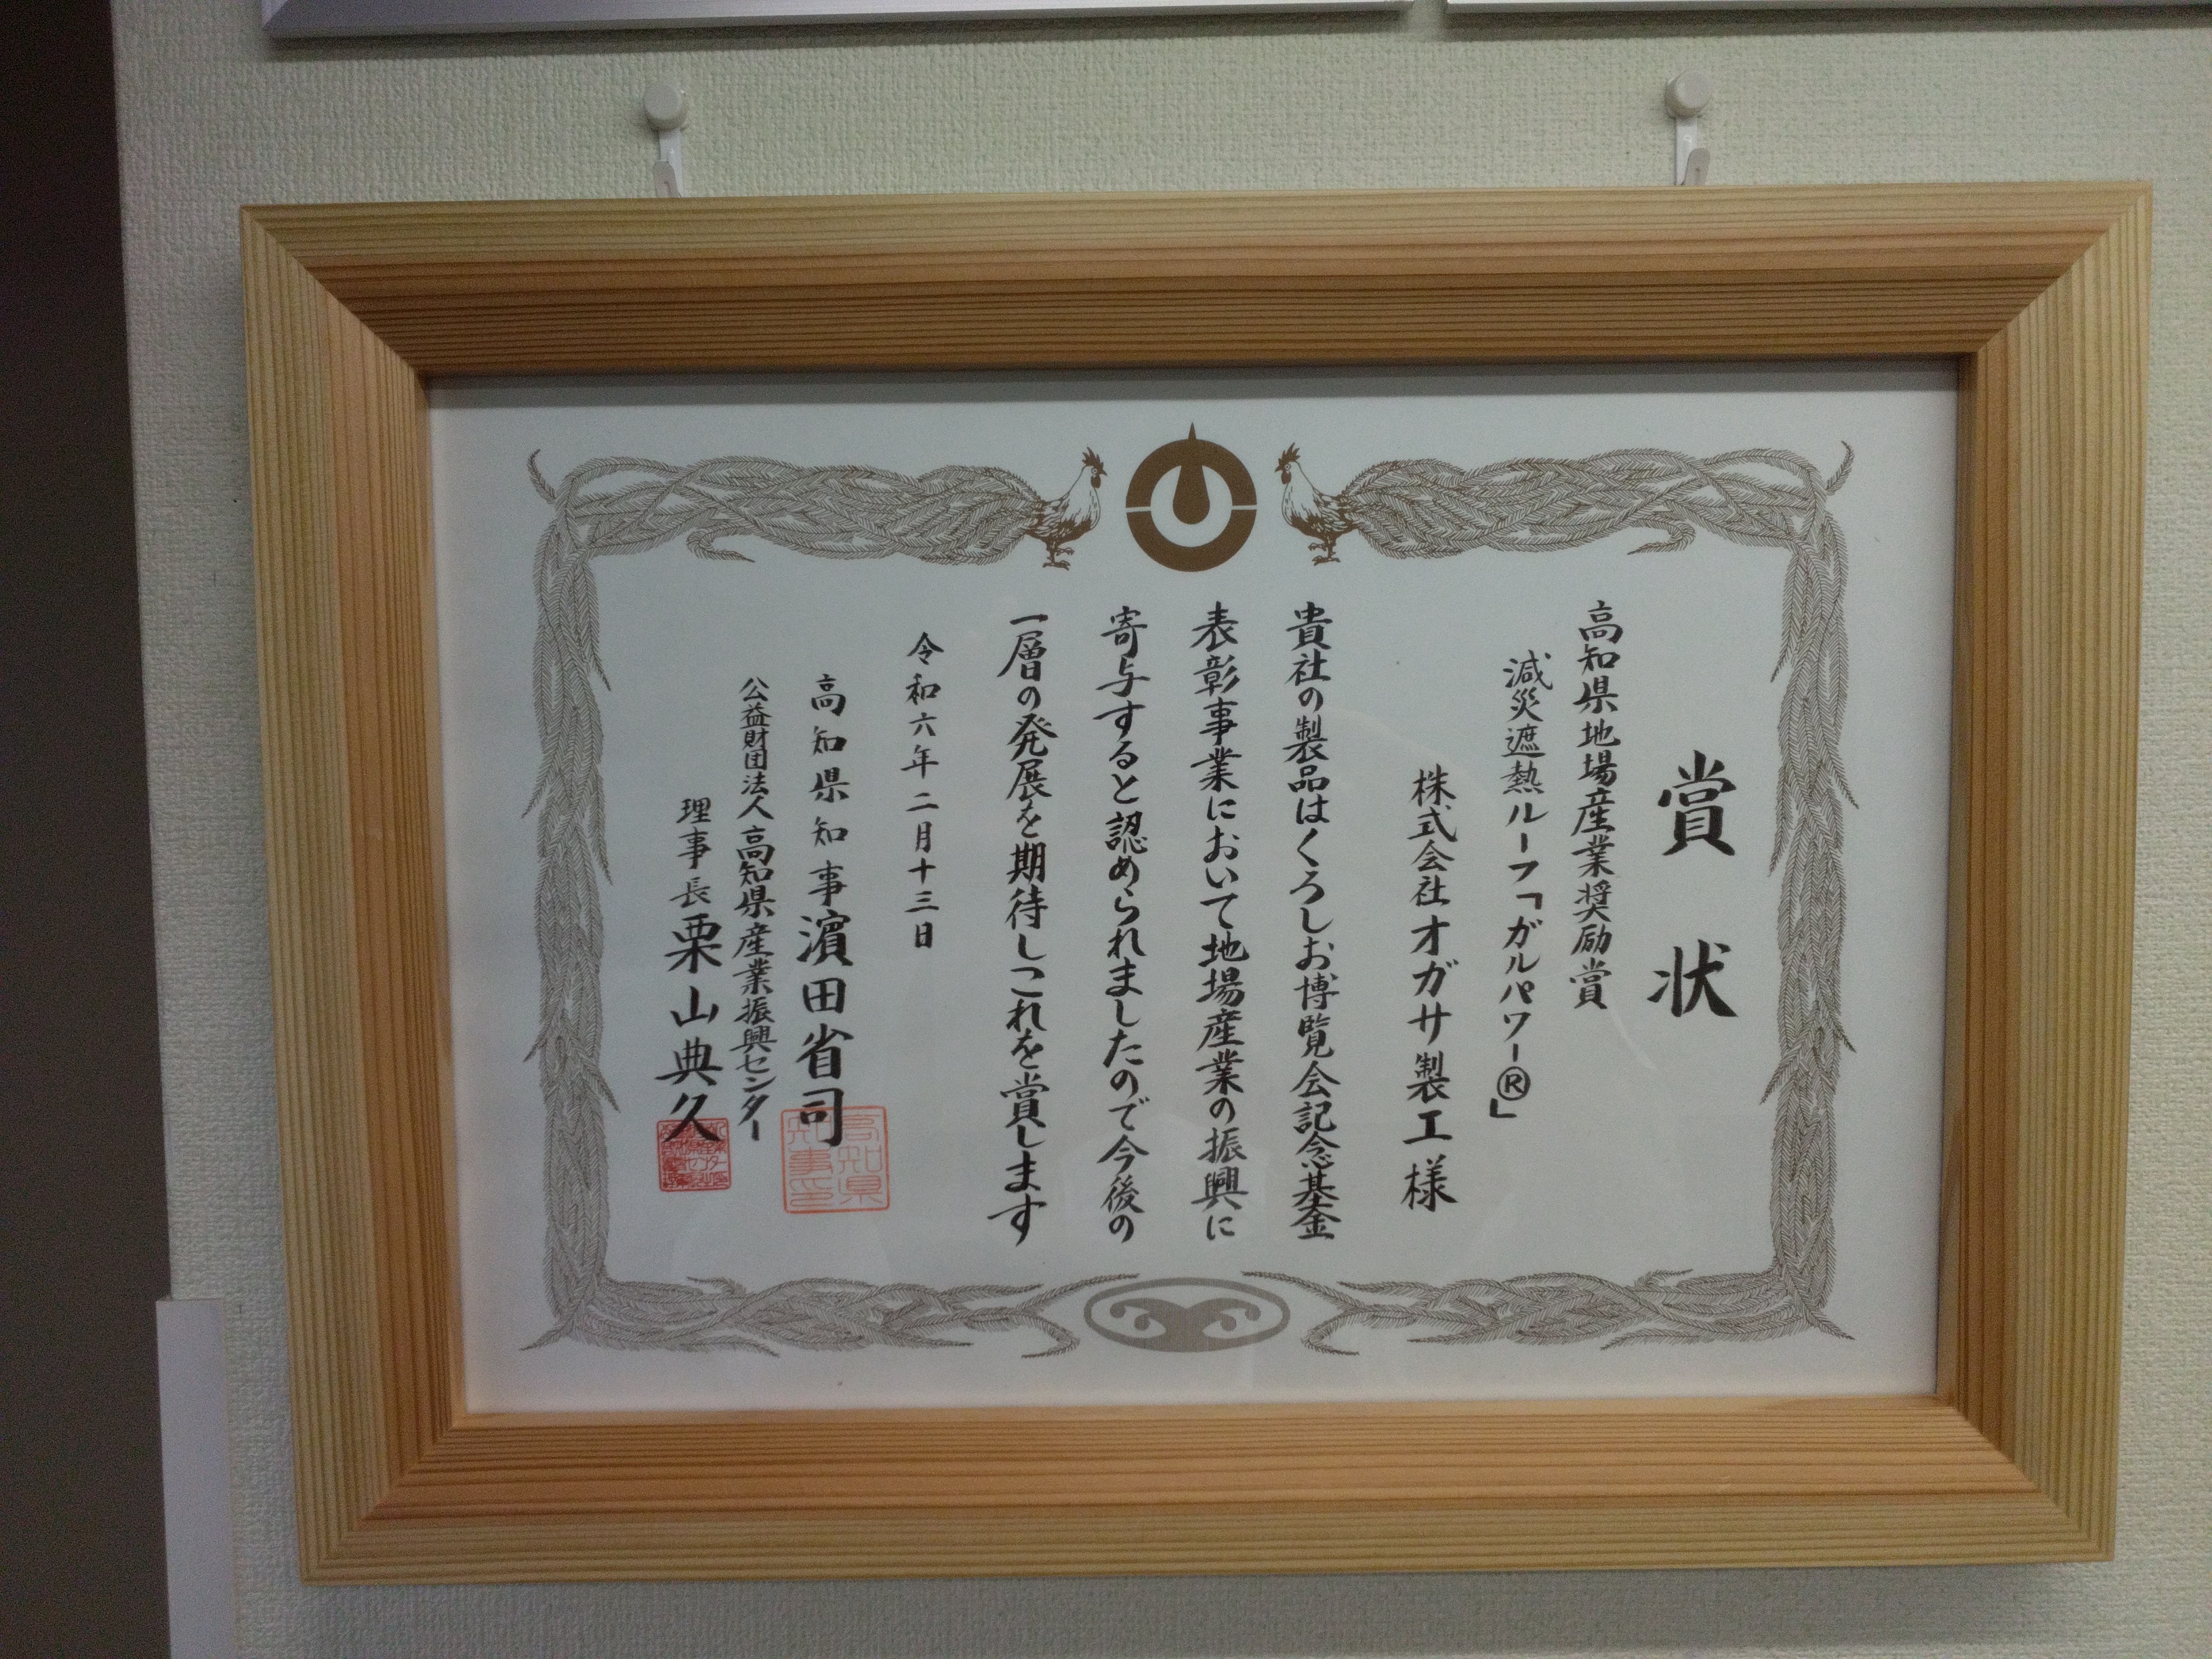 賞状
高知県地場産業奨励賞
減災遮熱ルーフ「ガルパワー®」
株式会社オガサ製工様
貴社の製品はくろしお博覧会記念基金
表彰事業において地場産業の振興に
寄与すると認められましたので今後の
一層の発展を期待しこれを賞します
令和六年二月十三日
高知県知事濵田省司
公益財団法人高知県産業振興センター
理事長栗山典久
高知県
知事印